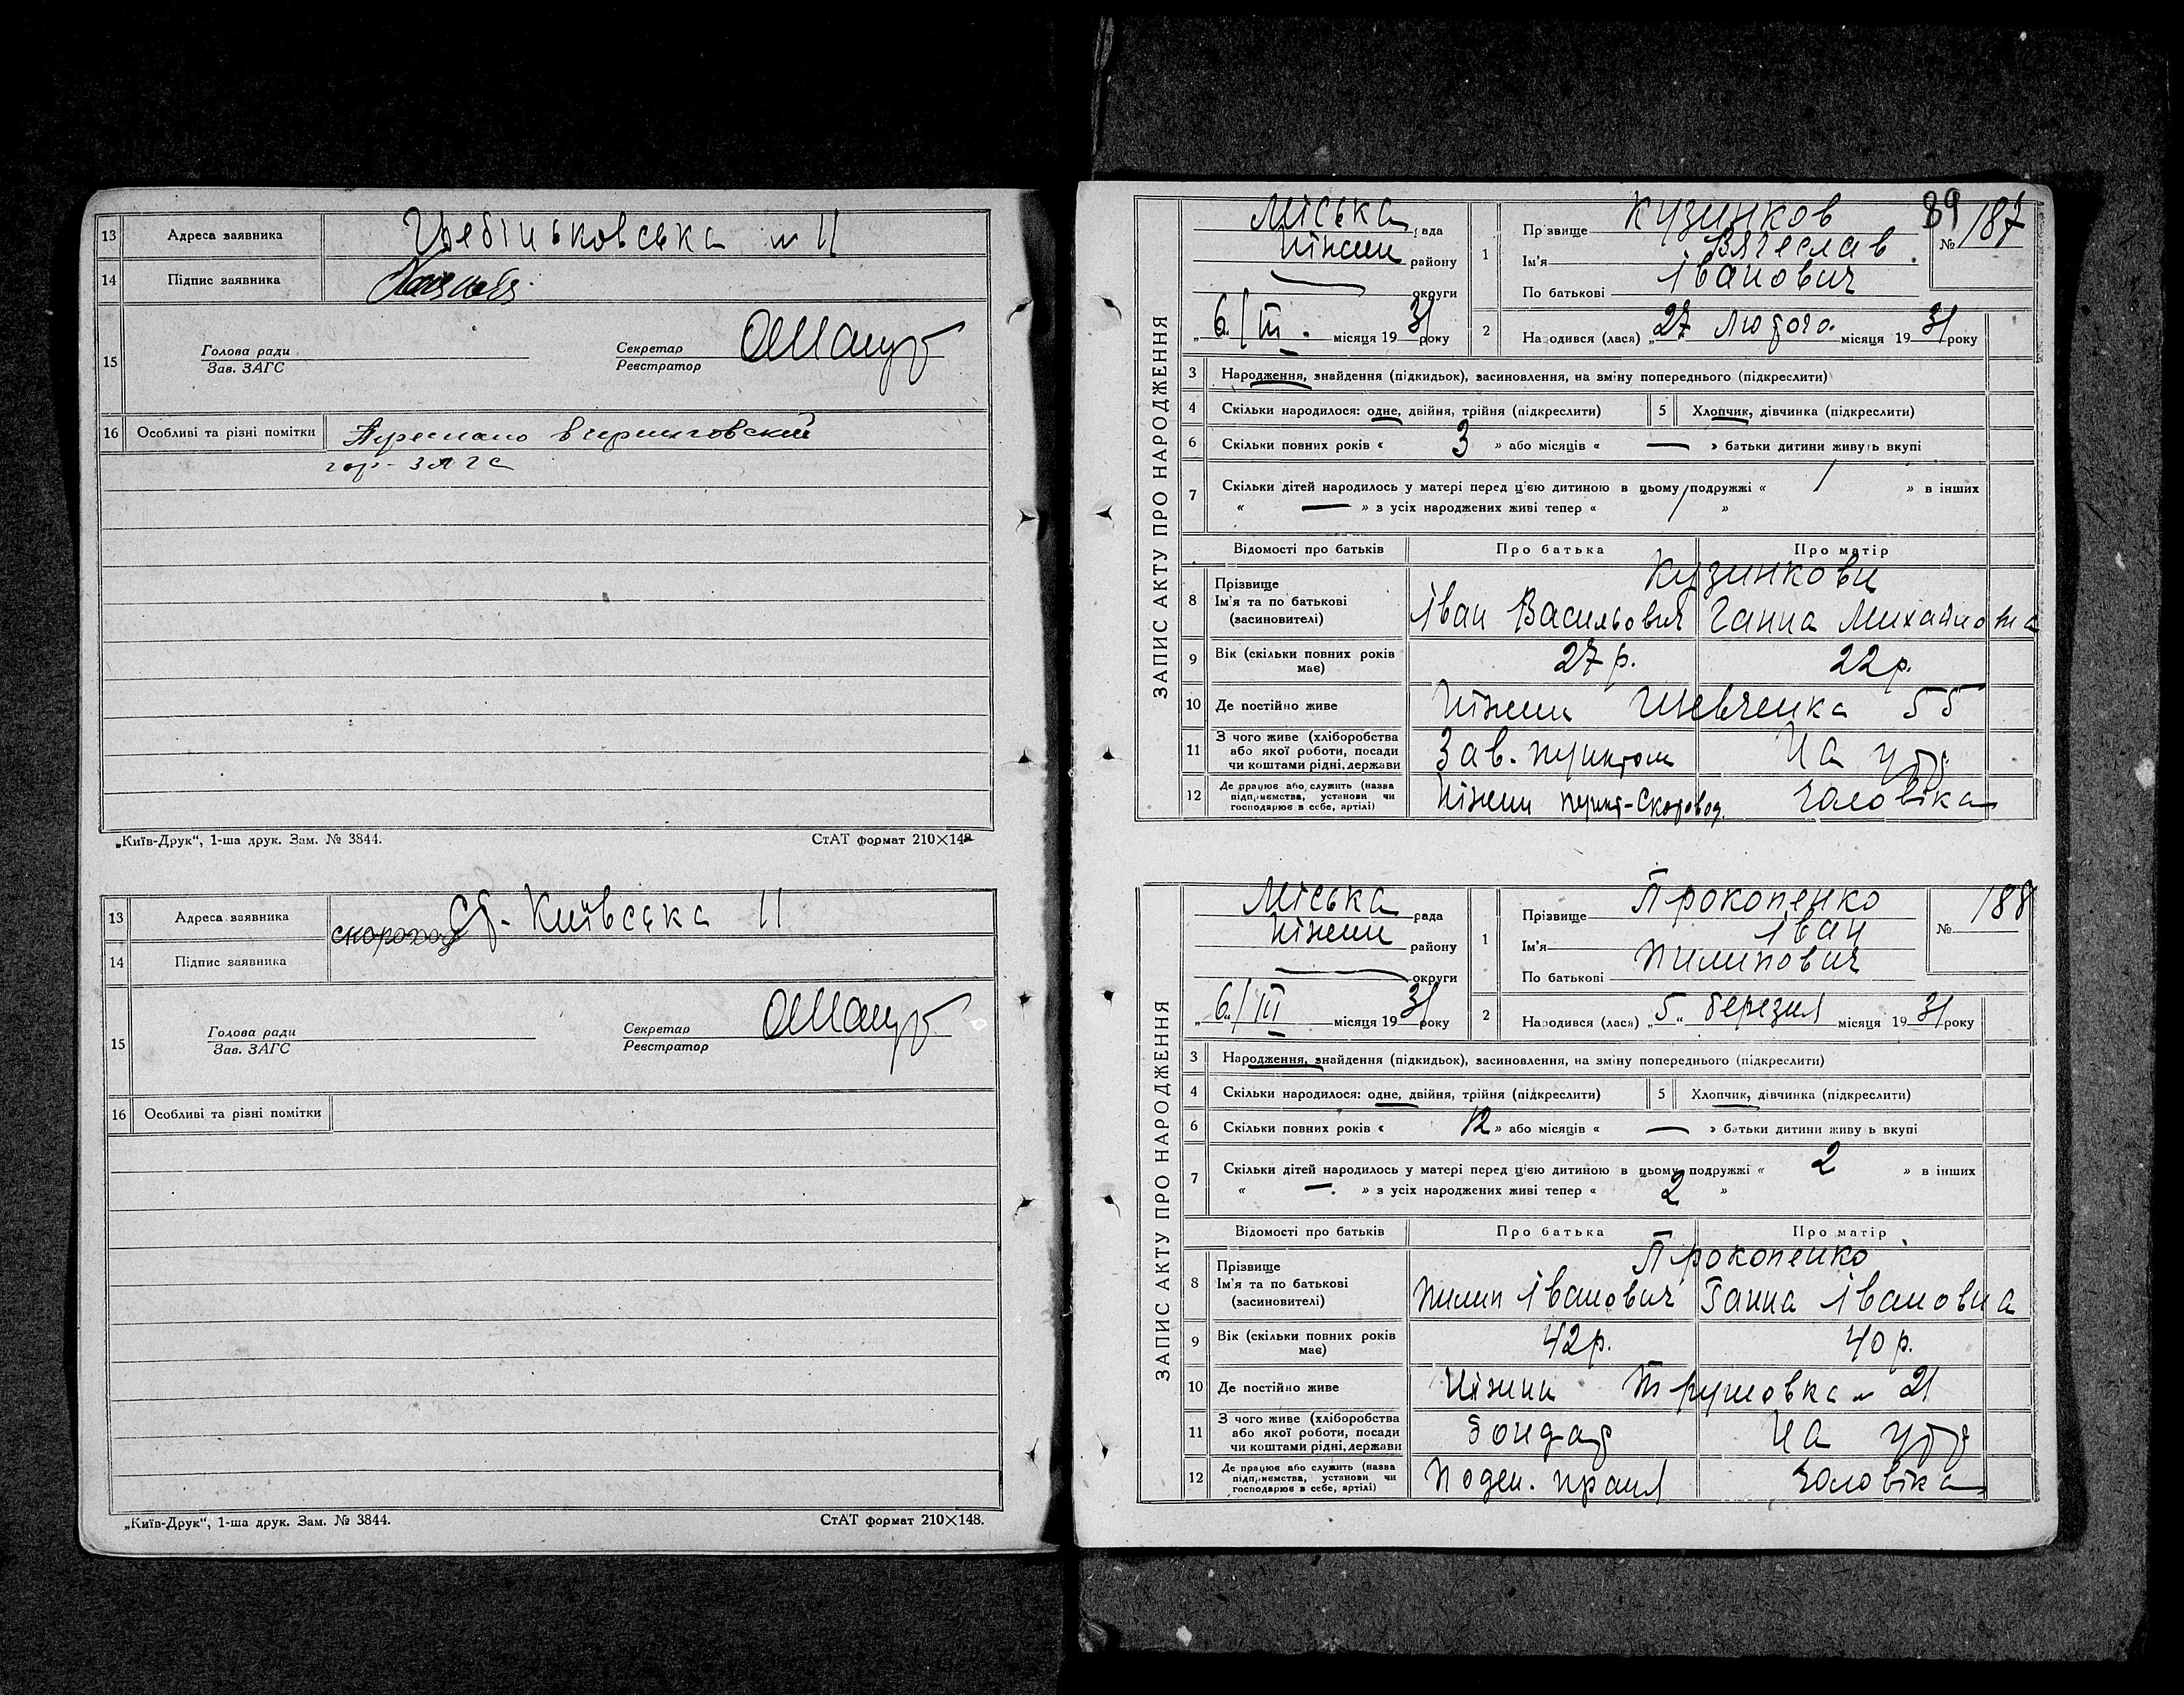 13 Адреса заявника Гребіньковська № 11
14 Підпис заявника
15 Голова ради
Зав. ЗАГС
Секретар
Реєстратор
16 Особливі та різні помітки
гор-ЗАГС
„Київ-Друк“, 1-ша друк. Зам. № 3844. СтАТ формат 210×148
13 Адреса заявника Ст- Київська 11
скороход
14 Підпис заявника
15 Голова ради
Зав. ЗАГС
Секретар
Реєстратор
16 Особливі та різні помітки
„Київ-Друк“, 1-ша друк. Зам. № 3844. СтАТ формат 210×148.
89
ЗАПИС АКТУ ПРО НАРОДЖЕННЯ
Міська рада
Ніжин району
округи
„6„/III. місяця 1931 року
1 Прізвище Кузинков
Ім'я Вячеслав
По батькові Іванович
№ 187
2 Народився (лася) „27 лютого місяця 1931 року
3 Народження, знайдення (підкидьок), засиновлення, на зміну попереднього (підкреслити)
4 Скільки народилося: одне, двійня, трійня (підкреслити) 5 Хлопчик, дівчинка (підкреслити)
6 Скільки повних років « 3 » або місяців « — » батьки дитини живуть вкупі
7 Скільки дітей народилось у матері перед цією дитиною в цьому подружжі « 1 » в інших
« — » з усіх народжених живі тепер « 1 »
Відомості про батьків Про батька Про матір
8 Прізвище Кузинкови
Ім'я та по батькові Іван Васильович Ганна Михайловна
(засиновителі)
9 Вік (скільки повних років 27 р. 22 р.
має)
10 Де постійно живе Ніжин Шевченка 55
11 З чого живе (хліборобства
або якої роботи, посади Зав. пунктом На утр
чи коштами рідні, держави
12 Де працює або служить (назва
підприємства, установи чи Ніжин пункт-Скотовод. чоловіка
господарює в себе, артілі)
ЗАПИС АКТУ ПРО НАРОДЖЕННЯ
Міська рада
Ніжин району
округи
„6„/III місяця 1931 року
1 Прізвище Прокопенко
Ім'я Іван
По батькові Пилипович
№ 188
2 Народився (лася) „5„ березня місяця 1931 року
3 Народження, знайдення (підкидьок), засиновлення, на зміну попереднього (підкреслити)
4 Скільки народилося: одне, двійня, трійня (підкреслити) 5 Хлопчик, дівчинка (підкреслити)
6 Скільки повних років « 12 » або місяців « — » батьки дитини живуть вкупі
7 Скільки дітей народилось у матері перед цією дитиною в цьому подружжі « 2 » в інших
« — » з усіх народжених живі тепер « 2 »
Відомості про батьків Про батька Про матір
8 Прізвище Прокопенко
Ім'я та по батькові Пилип Іванович Ганна Івановна
(засиновителі)
9 Вік (скільки повних років 42 р. 40 р.
має)
10 Де постійно живе Ніжин № 21
11 З чого живе (хліборобства
або якої роботи, посади бондар На утр
чи коштами рідні, держави
12 Де працює або служить (назва
підприємства, установи чи Поден. праця чоловіка
господарює в себе, артілі)